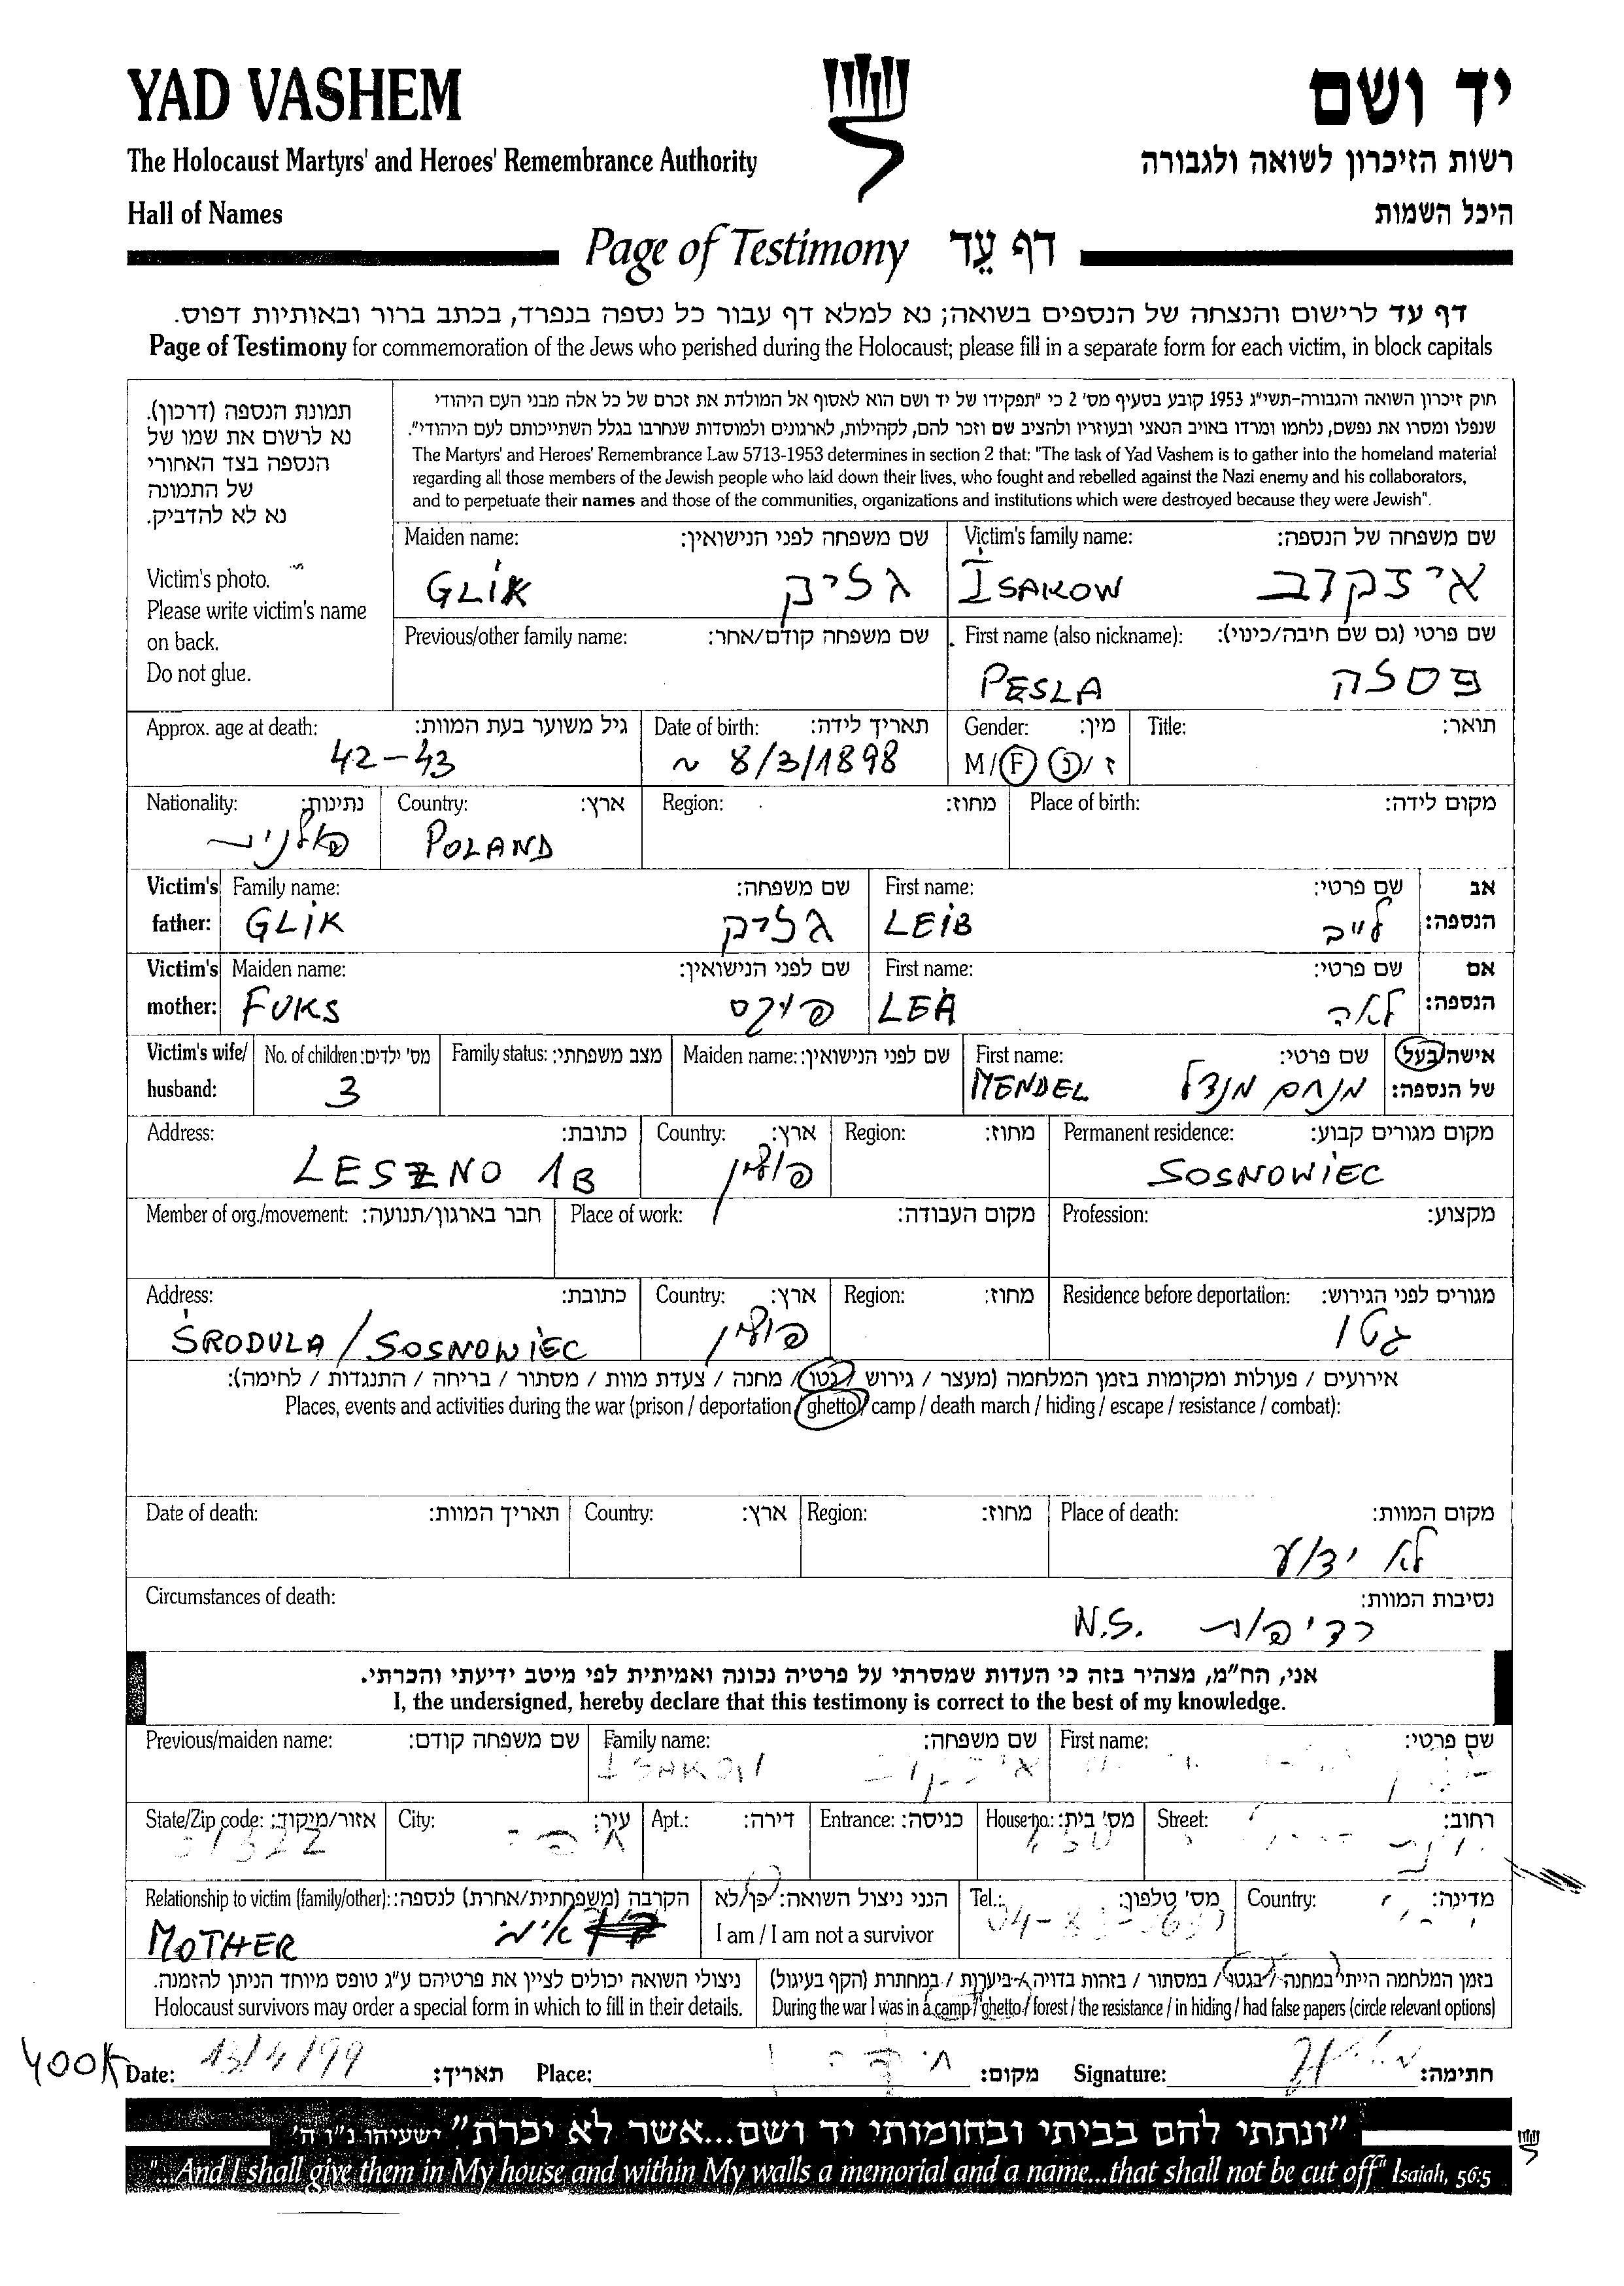 YAD VASHEM
יד ושם
The Holocaust Martyrs' and Heroes' Remembrance Authority
רשות הזיכרון לשואה ולגבורה
Hall of Names
היכל השמות
Page of Testimony דף עֵד
דף עד לרישום והנצחה של הנספים בשואה; נא למלא דף עבור כל נספה בנפרד, בכתב ברור ובאותיות דפוס.
Page of Testimony for commemoration of the Jews who perished during the Holocaust; please fill in a separate form for each victim, in block capitals
תמונת הנספה (דרכון).
נא לרשום את שמו של
הנספה בצד האחורי
של התמונה
נא לא להדביק.
Victim's photo.
Please write victim's name
on back.
Do not glue.
חוק זיכרון השואה והגבורה-תשי"ג 1953 קובע בסעיף מס' 2 כי "תפקידו של יד ושם הוא לאסוף אל המולדת את זכרם של כל אלה מבני העם היהודי
שנפלו ומסרו את נפשם, נלחמו ומרדו באויב הנאצי ובעוזריו ולהציב שם וזכר להם, לקהילות, לארגונים ולמוסדות שנחרבו בגלל השתייכותם לעם היהודי".
The Martyrs' and Heroes' Remembrance Law 5713-1953 determines in section 2 that: "The task of Yad Vashem is to gather into the homeland material
regarding all those members of the Jewish people who laid down their lives, who fought and rebelled against the Nazi enemy and his collaborators,
and to perpetuate their names and those of the communities, organizations and institutions which were destroyed because they were Jewish".
Maiden name: שם משפחה לפני הנישואין: Victim's family name: שם משפחה של הנספה:
GLIK גליק ISAKOW איזקוב
Previous/other family name: שם משפחה קודם/אחר: First name (also nickname): שם פרטי (גם שם חיבה/כינוי):
PESLA פסלה
Approx. age at death: גיל משוער בעת המוות: Date of birth: תאריך לידה: Gender: מין: Title: תואר:
42-43 ~ 8/3/1898 M / F נ / ז
Nationality: נתינות: Country: ארץ: Region: מחוז: Place of birth: מקום לידה:
פולנית POLAND
Victim's Family name: שם משפחה: First name: שם פרטי: אב
father: GLIK גליק LEIB לייב הנספה:
Victim's Maiden name: שם לפני הנישואין: First name: שם פרטי: אם
mother: FUKS פוקס LEA לאה הנספה:
Victim's wife/ No. of children: מס' ילדים: Family status: מצב משפחתי: Maiden name: שם לפני הנישואין: First name: שם פרטי: אישה/בעל
husband: 3 MENDEL מנחם מנדל של הנספה:
Address: כתובת: Country: ארץ: Region: מחוז: Permanent residence: מקום מגורים קבוע:
LESZNO 1B פולין SOSNOWIEC
Member of org./movement: חבר בארגון/תנועה: Place of work: מקום העבודה: Profession: מקצוע:
Address: כתובת: Country: ארץ: Region: מחוז: Residence before deportation: מגורים לפני הגירוש:
ŚRODULA / SOSNOWIEC פולין גטו
אירועים / פעולות ומקומות בזמן המלחמה (מעצר / גירוש / גטו / מחנה / צעדת מוות / מסתור / בריחה / התנגדות / לחימה):
Places, events and activities during the war (prison / deportation / ghetto / camp / death march / hiding / escape / resistance / combat):
Date of death: תאריך המוות: Country: ארץ: Region: מחוז: Place of death: מקום המוות:
לא ידוע
Circumstances of death: נסיבות המוות:
N.S. רדיפות
אני, הח"מ, מצהיר בזה כי העדות שמסרתי על פרטיה נכונה ואמיתית לפי מיטב ידיעתי והכרתי.
I, the undersigned, hereby declare that this testimony is correct to the best of my knowledge.
Previous/maiden name: שם משפחה קודם: Family name: שם משפחה: First name: שם פרטי:
ISAKOW
State/Zip code: אזור/מיקוד: City: עיר: Apt.: דירה: Entrance: כניסה: House no.: מס' בית: Street: רחוב:
Relationship to victim (family/other): הקרבה (משפחתית/אחרת) לנספה: הנני ניצול השואה: כן/לא Tel.: מס' טלפון: Country: מדינה:
MOTHER I am / I am not a survivor
ניצולי השואה יכולים לציין את פרטיהם ע"ג טופס מיוחד הניתן להזמנה. בזמן המלחמה הייתי במחנה / בגטו / במסתור / בזהות בדויה / ביערות / במחתרת (הקף בעיגול)
Holocaust survivors may order a special form in which to fill in their details. During the war I was in a camp / ghetto / forest / the resistance / in hiding / had false papers (circle relevant options)
400K Date: 13/4/99 תאריך: Place: מקום: Signature: חתימה:
"ונתתי להם בביתי ובחומותי יד ושם...אשר לא יכרת" ישעיהו נ"ו ה'
"...And I shall give them in My house and within My walls a memorial and a name...that shall not be cut off" Isaiah, 56:5